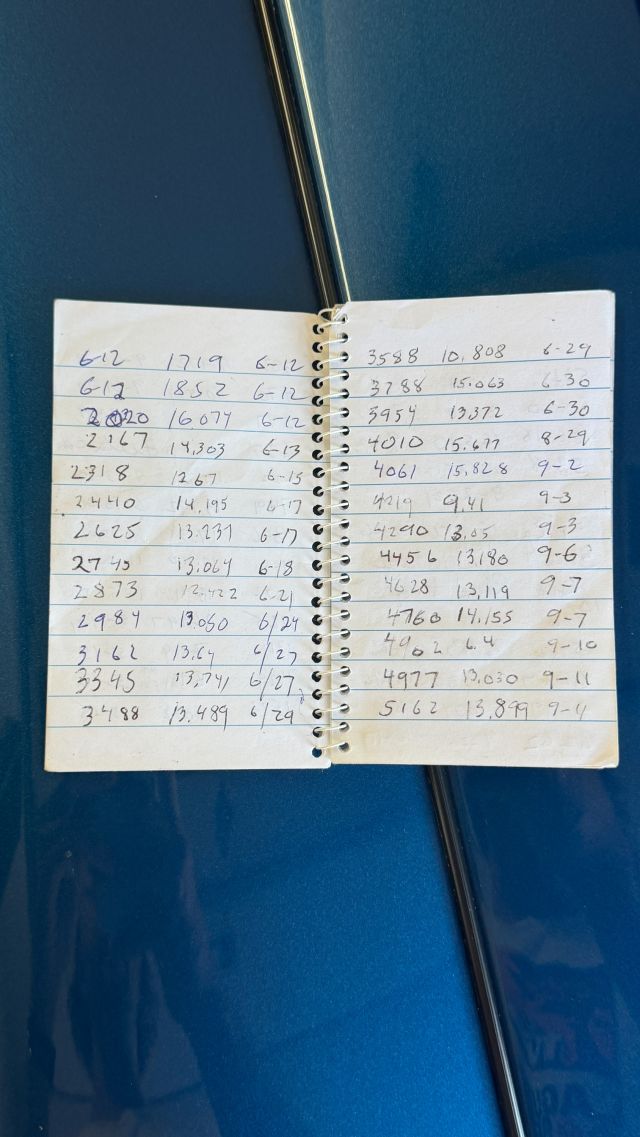 6-12 1719 6-12
6-12 1852 6-12
2020 16.074 6-12
2167 14,303 6-13
2318 1267 6-15
2440 14,195 6-17
2625 13.231 6-17
2745 13,064 6-18
2873 12,422 6-21
2984 13.050 6/24
3162 13,64 6/27
3345 13,741 6/27
3488 13,489 6/29
3588 10,808 6-29
3788 15.063 6-30
3954 13,372 6-30
4010 15.677 8-29
4061 15,828 9-2
4219 9,41 9-3
4290 13,05 9-3
4456 13,180 9-6
4628 13,119 9-7
4760 14,155 9-7
4902 6.4 9-10
4977 13,030 9-11
5162 13,899